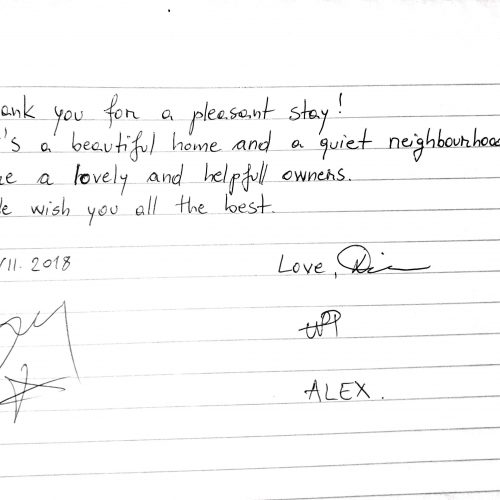 ank you for a pleasant stay!
's a beautiful home and a quiet neighbourhoo
re a lovely and helpfull owners.
e wish you all the best.
VII. 2018
Love,
ALEX.